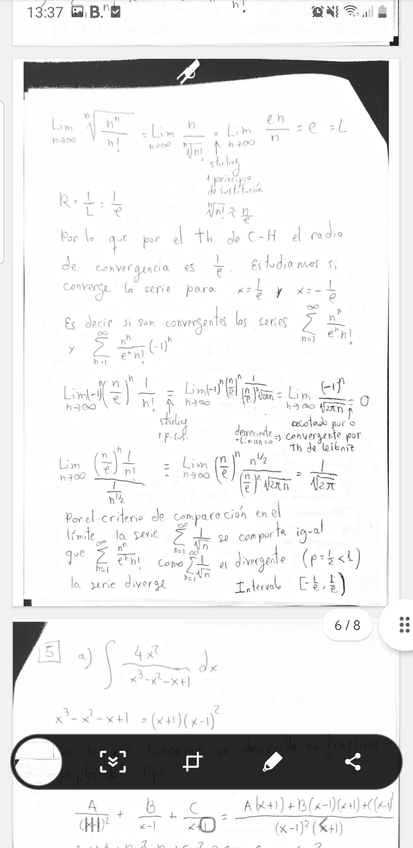 13:37 B.
n!
Lim n→∞ ⁿ√(nⁿ/n!) = Lim n→∞ n/ⁿ√n! = Lim n→∞ en/n = e = L
stirling
+ principio
de sustitución
ⁿ√n! ≈ n/e
R = 1/L = 1/e
Por lo que por el th. de C-H el radio
de convergencia es 1/e. Estudiamos si
converge la serie para x=1/e y x=-1/e
Es decir si son convergentes las series ∞ Σ n=1 nⁿ/eⁿn!
y ∞ Σ n=1 nⁿ/eⁿn! (-1)ⁿ
Lim n→∞ (-1)ⁿ (n/e)ⁿ 1/n! = Lim n→∞ (-1)ⁿ (n/e)ⁿ (e/n)ⁿ 1/√2πn = Lim n→∞ (-1)ⁿ/√2πn = 0
stirling
+ p. sus.
decreciente
+Liman=0 ⇒
acotado por 0
convergente por
Th de leibniz
Lim n→∞ (n/e)ⁿ 1/n! / 1/n^1/2 = Lim n→∞ (n/e)ⁿ n^1/2 / (n/e)ⁿ √2πn = 1/√2π
Por el criterio de comparación en el
límite la serie ∞ Σ n=1 1/√n se comporta igual
que ∞ Σ n=1 nⁿ/eⁿn! como ∞ Σ n=1 1/√n es divergente (p=1/2<1)
la serie diverge Intervalo [-1/e, 1/e)
6/8
5 a) ∫ 4x²/(x³-x²-x+1) dx
x³-x²-x+1 = (x+1)(x-1)²
A/(x-1)² + B/(x-1) + C/(x+1) = A(x+1)+B(x-1)(x+1)+C(x-1)²/(x-1)²(x+1)